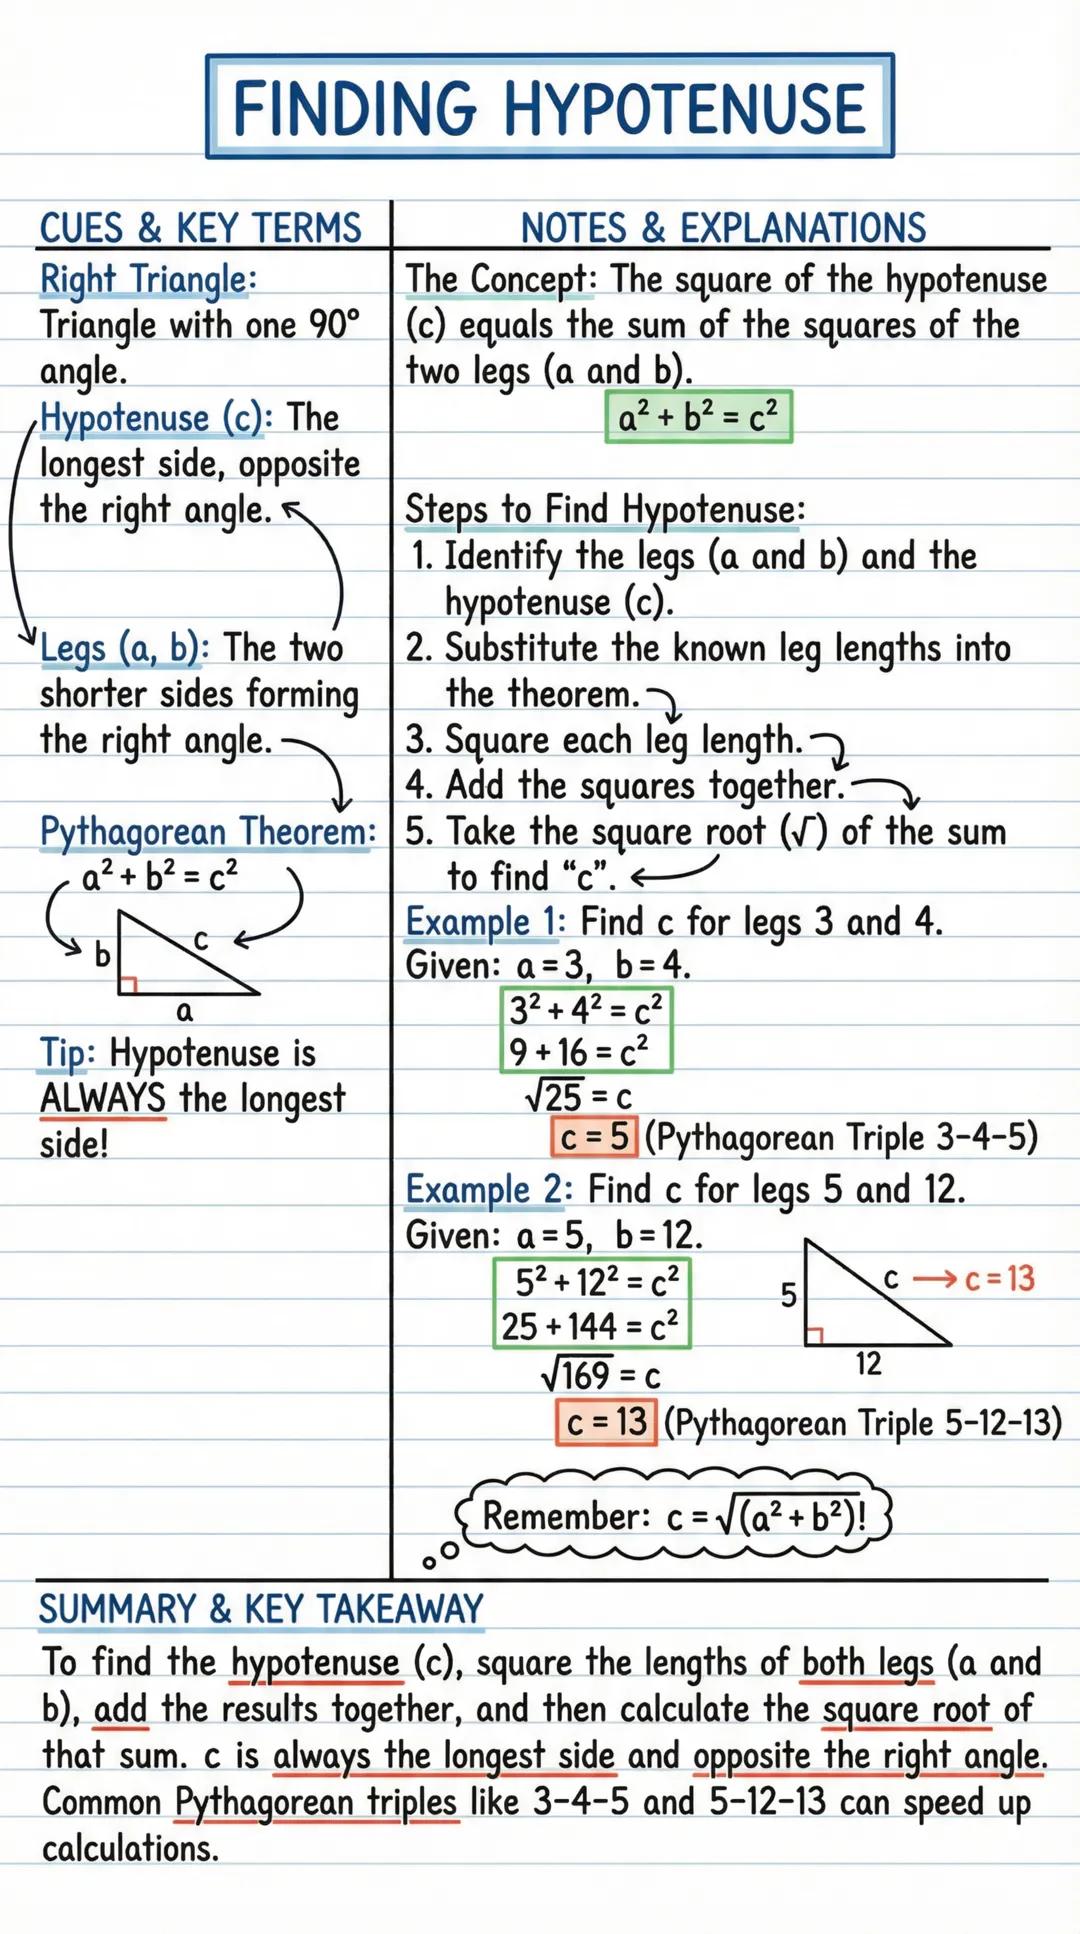 FINDING HYPOTENUSE
CUES & KEY TERMS
Right Triangle:
Triangle with one 90°
angle.
Hypotenuse (c): The
longest side, opposite
the right angle.
Legs (a, b): The two
shorter sides forming
the right angle.
Pythagorean Theorem:
a² + b² = c²
b
c
a
Tip: Hypotenuse is
ALWAYS the longest
side!
NOTES & EXPLANATIONS
The Concept: The square of the hypotenuse
(c) equals the sum of the squares of the
two legs (a and b).
a² + b² = c²
Steps to Find Hypotenuse:
1. Identify the legs (a and b) and the
hypotenuse (c).
2. Substitute the known leg lengths into
the theorem.
3. Square each leg length.
4. Add the squares together.
5. Take the square root (√) of the sum
to find “c”.
Example 1: Find c for legs 3 and 4.
Given: a = 3, b = 4.
3² + 4² = c²
9 + 16 = c²
√25 = c
c = 5 (Pythagorean Triple 3-4-5)
Example 2: Find c for legs 5 and 12.
Given: a = 5, b = 12.
5² + 12² = c²
25 + 144 = c²
√169 = c
c = 13 (Pythagorean Triple 5-12-13)
5
c → c = 13
12
Remember: c = √(a² + b²)!
SUMMARY & KEY TAKEAWAY
To find the hypotenuse (c), square the lengths of both legs (a and
b), add the results together, and then calculate the square root of
that sum. c is always the longest side and opposite the right angle.
Common Pythagorean triples like 3-4-5 and 5-12-13 can speed up
calculations.